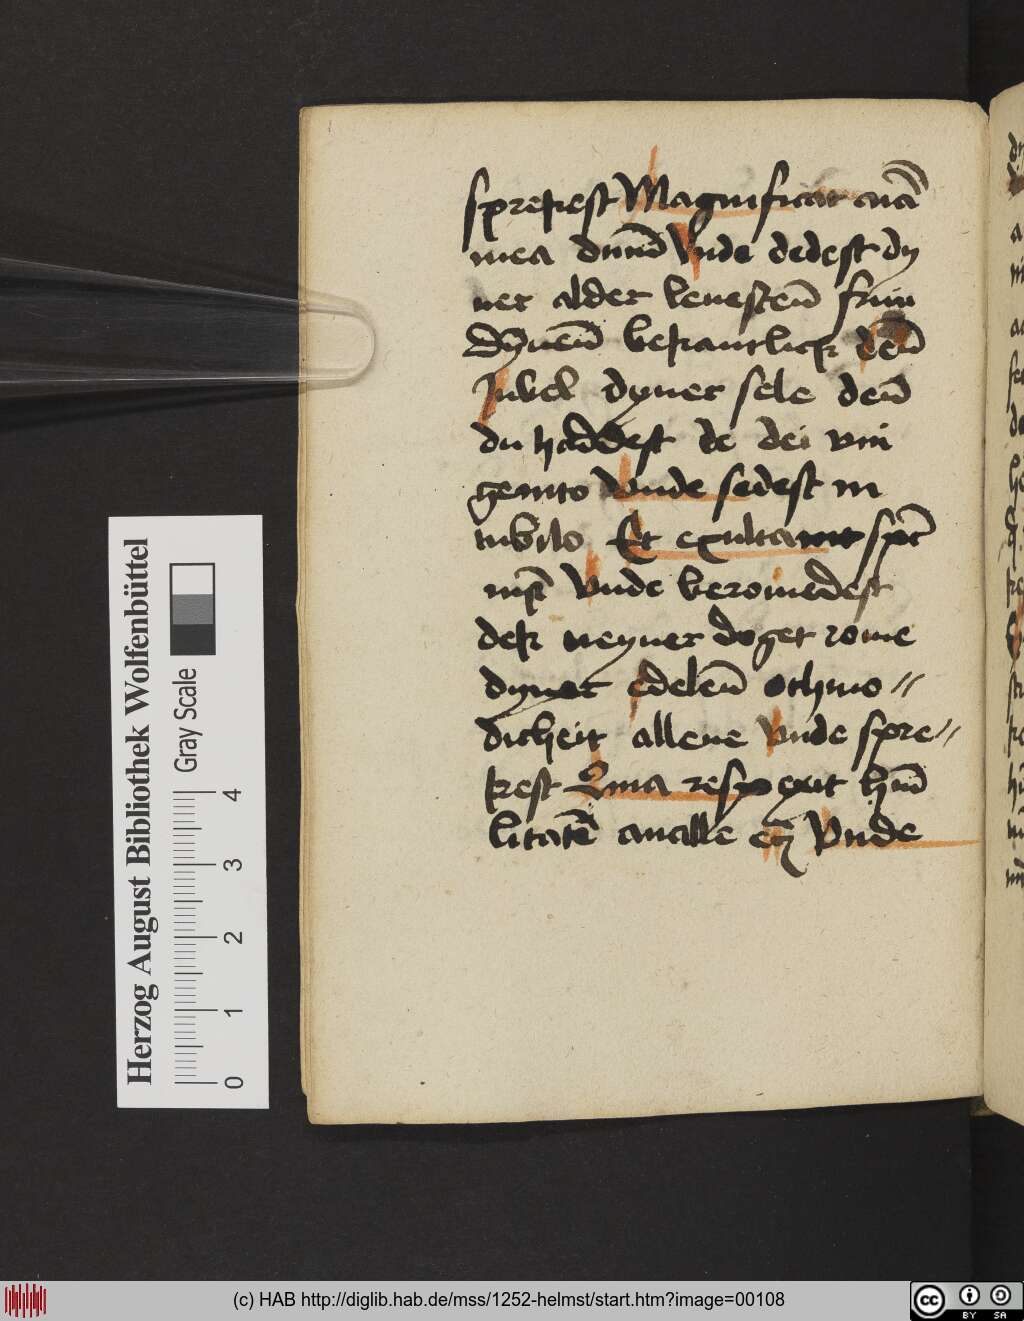 sprekest Magnificat aīā
mea dnūm Vnde dedest dy
ner alder leuesteū frūn
Dyneū bekantlick deū
Jubel dyner sele deū
du haddest de dei vni
genito Vnde sedest in
iubilo Et exultauit spūs
mūs Vnde beromedest
dek neyner doget rome
dyner edeleū othmo〃
dicheit allene vnde spre〃
kest Quia respexit hūi
litatē ancille etc̄ Vnde
Herzog August Bibliothek Wolfenbüttel
Gray Scale
0 1 2 3 4
(c) HAB http://diglib.hab.de/mss/1252-helmst/start.htm?image=00108
cc BY SA